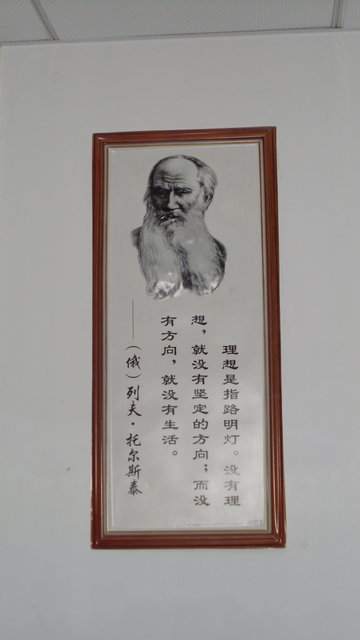 理想是指路明灯。没有理
想，就没有坚定的方向；而没
有方向，就没有生活。
——（俄）列夫·托尔斯泰